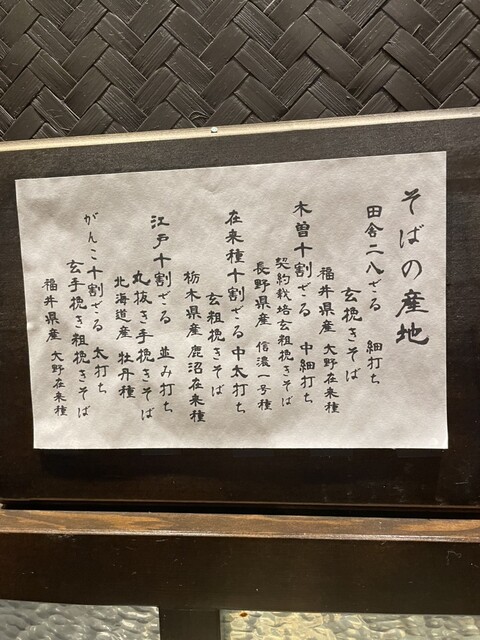 そばの産地
田舎二八ざる 細打ち
玄挽きそば
福井県産 大野在来種
木曽十割ざる 中細打ち
契約栽培玄粗挽きそば
長野県産 信濃一号種
在来種十割ざる 中太打ち
玄粗挽きそば
栃木県産 鹿沼在来種
江戸十割ざる 並み打ち
丸抜き手挽きそば
北海道産 牡丹種
がんこ十割ざる 太打ち
玄手挽きそば
福井県産 大野在来種